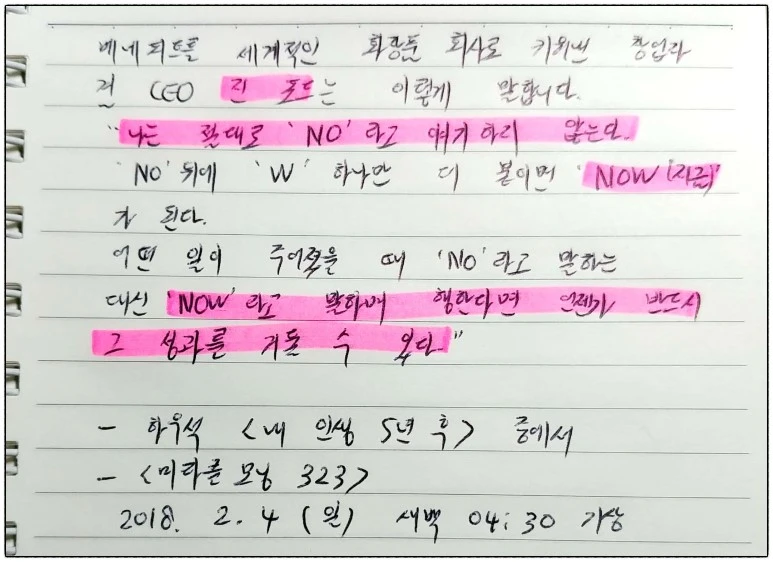 베네피트를 세계적인 화장품 회사로 키워낸 창업자
전 CEO 진 포드는 이렇게 말합니다.
"나는 절대로 'NO'라고 여기하리 않는다.
'NO'뒤에 'W' 하나만 더 붙이면 'NOW(지금)'
가 된다.
어떤 일이 주어졌을 때 'NO'라고 말하는
대신 'NOW'라고 말하며 행한다면 언젠가 반드시
그 성과를 거둘 수 있다."
- 하우석 <내 인생 5년 후> 중에서
- <미라클 모닝 323>
2018. 2. 4 (일) 새벽 04:30 기상